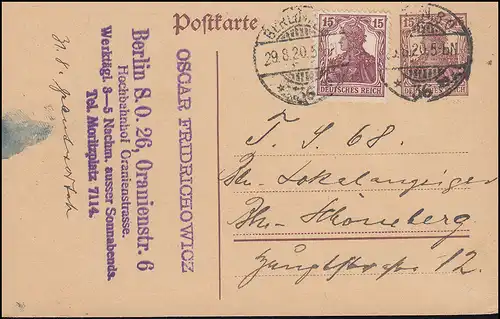 Postkarte
BERLIN
29.8.20.5-6N
15 15
DEUTSCHES REICH
15 15
DEUTSCHES REICH
OSCAR FRIDRICHOWICZ
Berlin S.O. 26, Oranienstr. 6
Hochbahnhof Oranienstrasse.
Werktägl. 3—5 Nachm. ausser Sonnabends.
Tel. Moritzplatz 7114.
31. 8.
T. S. 68.
Bln. Lokalanzeiger
Bln. Schöneberg
Hauptstrasse 12.